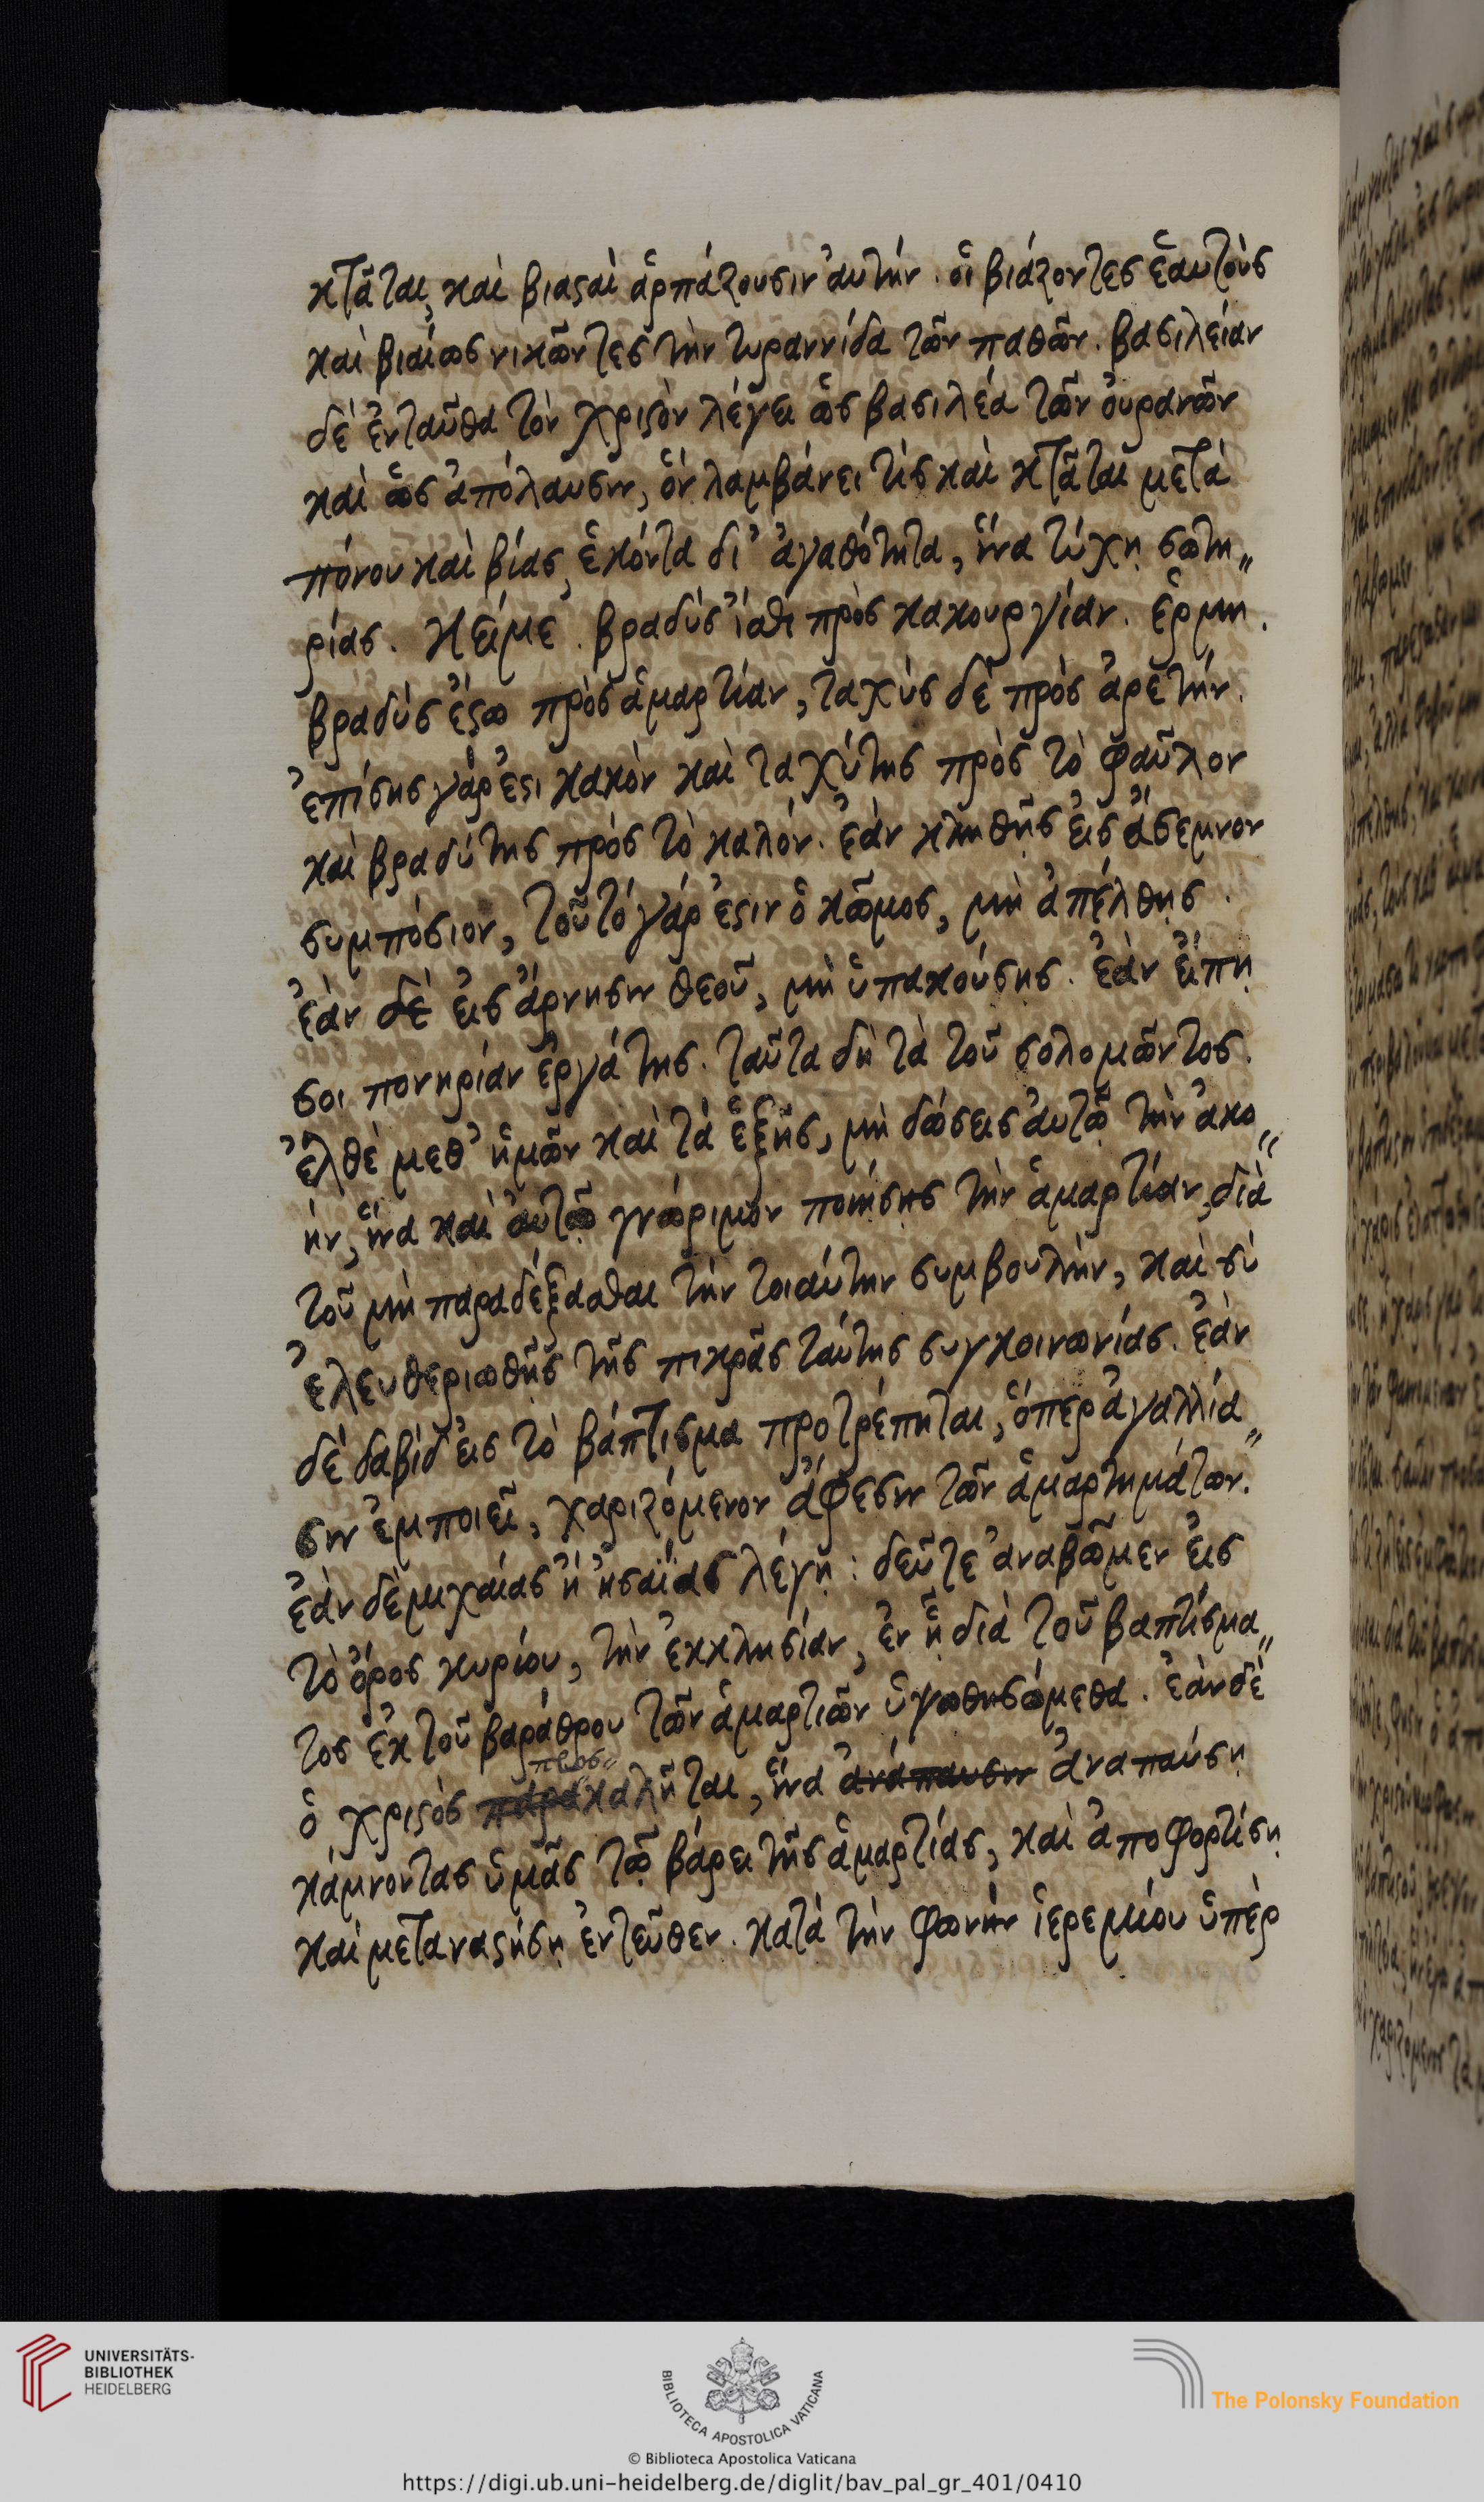 κτᾶται, καὶ βιασαὶ ἁρπάζουσιν αὐτήν. οἱ βιάζοντες ἑαυτοὺς
καὶ βιαίως νικῶντες τὴν τυραννίδα τῶν παθῶν. βασιλείαν
δὲ ἐνταῦθα τὸν χριστὸν λέγει ὡς βασιλέα τῶν οὐρανῶν
καὶ ὡς ἀπόλαυσιν, ὃν λαμβάνει τὶς καὶ κτᾶται μετὰ
πόνου καὶ βίας, ἑκόντα δι' ἀγαθότητα, ἵνα τύχῃ σωτη„
ρίας. Κείμε. βραδὺς ἴσθι πρὸς κακουργίαν. ἑρμη.
βραδὺς ἔσω πρὸς ἁμαρτίαν, ταχὺς δὲ πρὸς ἀρετήν.
ἐπίσης γάρ ἐστι κακὸν καὶ ταχύτης πρὸς τὸ φαῦλον
καὶ βραδύτης πρὸς τὸ καλόν. ἐὰν κληθῇς εἰς ἄσεμνον
συμπόσιον, τοῦτο γάρ ἐστιν ὁ κῶμος, μὴ ἀπέλθῃς.
ἐὰν δὲ εἰς ἄρνησιν θεοῦ, μὴ ὑπακούσῃς. ἐὰν εἴπῃ
σοι πονηρίαν ἐργάτης. ταῦτα δὴ τὰ τοῦ σολομῶντος.
ἐλθὲ μεθ' ἡμῶν καὶ τὰ ἑξῆς, μὴ δώσεις αὐτῷ τὴν ἀκο„
ήν, ἵνα καὶ αὐτῷ γνώριμον ποιήσῃς τὴν ἁμαρτίαν, διὰ
τοῦ μὴ παραδέξασθαι τὴν τοιαύτην συμβουλὴν, καὶ σὺ
ἐλευθεριωθῇς τῆς πικρᾶς ταύτης συγκοινωνίας. ἐὰν
δὲ δαβὶδ εἰς τὸ βάπτισμα προτρέπηται, ὅπερ ἀγαλλία„
σιν ἐμποιεῖ, χαριζόμενον ἄφεσιν τῶν ἁμαρτημάτων.
ἐὰν δὲ μιχαίας ἢ ἠσαΐας λέγῃ: δεῦτε ἀναβῶμεν εἰς
τὸ ὄρος κυρίου, τὴν ἐκκλησίαν, ἐν ᾗ διὰ τοῦ βαπτίσμα„
τος ἐκ τοῦ βαράθρου τῶν ἁμαρτιῶν ὑψωθησόμεθα. ἐὰν δὲ
προσ
ὁ χριστὸς παρακαλῆται, ἵνα ἀνάπαυσιν ἀναπαύσῃ
κάμνοντας ὑμᾶς τῷ βάρει τῆς ἁμαρτίας, καὶ ἀποφορτίσῃ
καὶ μεταναστήσῃ ἐντεῦθεν. κατὰ τὴν φωνὴν ἱερεμίου ὑπὲρ
UNIVERSITÄTS-
BIBLIOTHEK
HEIDELBERG
BIBLIOTECA APOSTOLICA VATICANA
The Polonsky Foundation
© Biblioteca Apostolica Vaticana
https://digi.ub.uni-heidelberg.de/diglit/bav_pal_gr_401/0410